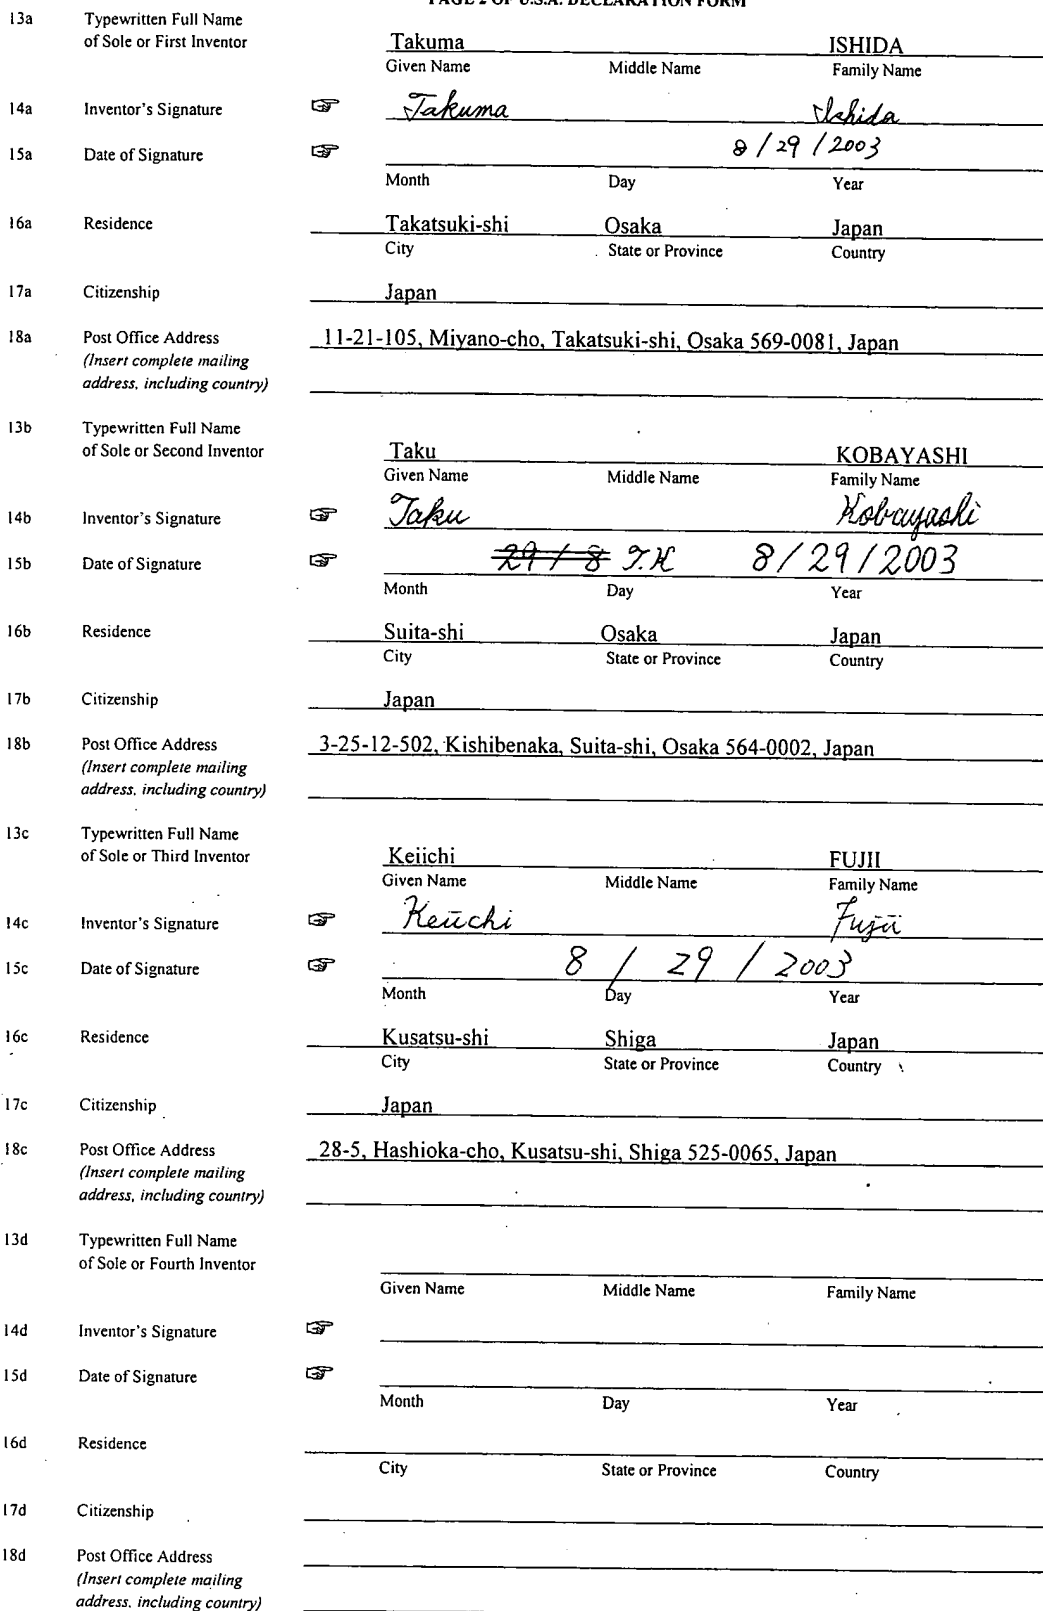 PAGE 2 OF U.S.A. DECLARATION FORM
13a Typewritten Full Name
of Sole or First Inventor Takuma ISHIDA
Given Name Middle Name Family Name
14a Inventor's Signature ☞ Takuma Ishida
15a Date of Signature ☞ 8 / 29 / 2003
Month Day Year
16a Residence Takatsuki-shi Osaka Japan
City State or Province Country
17a Citizenship Japan
18a Post Office Address 11-21-105, Miyano-cho, Takatsuki-shi, Osaka 569-0081, Japan
(Insert complete mailing
address, including country)
13b Typewritten Full Name
of Sole or Second Inventor Taku KOBAYASHI
Given Name Middle Name Family Name
14b Inventor's Signature ☞ Taku Kobayashi
15b Date of Signature ☞ 29 / 8 T.K 8/29/2003
Month Day Year
16b Residence Suita-shi Osaka Japan
City State or Province Country
17b Citizenship Japan
18b Post Office Address 3-25-12-502, Kishibenaka, Suita-shi, Osaka 564-0002, Japan
(Insert complete mailing
address, including country)
13c Typewritten Full Name
of Sole or Third Inventor Keiichi FUJII
Given Name Middle Name Family Name
14c Inventor's Signature ☞ Keiichi Fujii
15c Date of Signature ☞ 8 / 29 / 2003
Month Day Year
16c Residence Kusatsu-shi Shiga Japan
City State or Province Country
17c Citizenship Japan
18c Post Office Address 28-5, Hashioka-cho, Kusatsu-shi, Shiga 525-0065, Japan
(Insert complete mailing
address, including country)
13d Typewritten Full Name
of Sole or Fourth Inventor
Given Name Middle Name Family Name
14d Inventor's Signature ☞
15d Date of Signature ☞
Month Day Year
16d Residence
City State or Province Country
17d Citizenship
18d Post Office Address
(Insert complete mailing
address, including country)